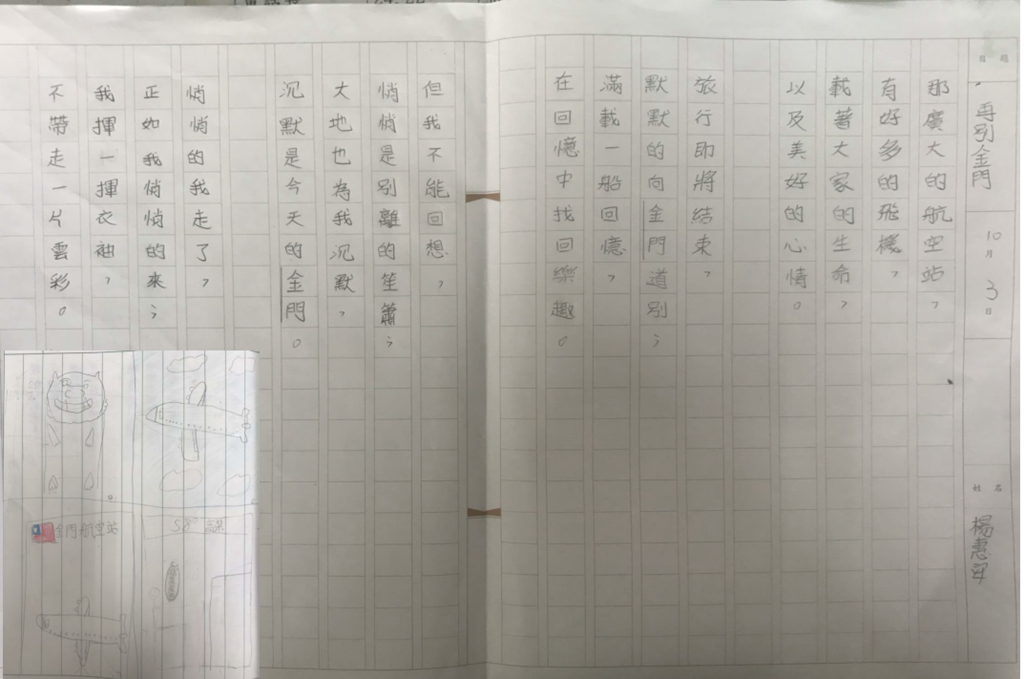 題目
再別金門
10月3日
姓名
楊惠
那廣大的航空站，
有好多的飛機，
載著大家的生命，
以及美好的心情。
旅行即將結束，
默默的向金門道別；
滿載一船回憶，
在回憶中找回樂趣。
但我不能回想，
悄悄是別離的笙簫；
大地也為我沉默，
沉默是今天的金門。
悄悄的我走了，
正如我悄悄的來；
我揮一揮衣袖，
不帶走一片雲彩。
金門航空站